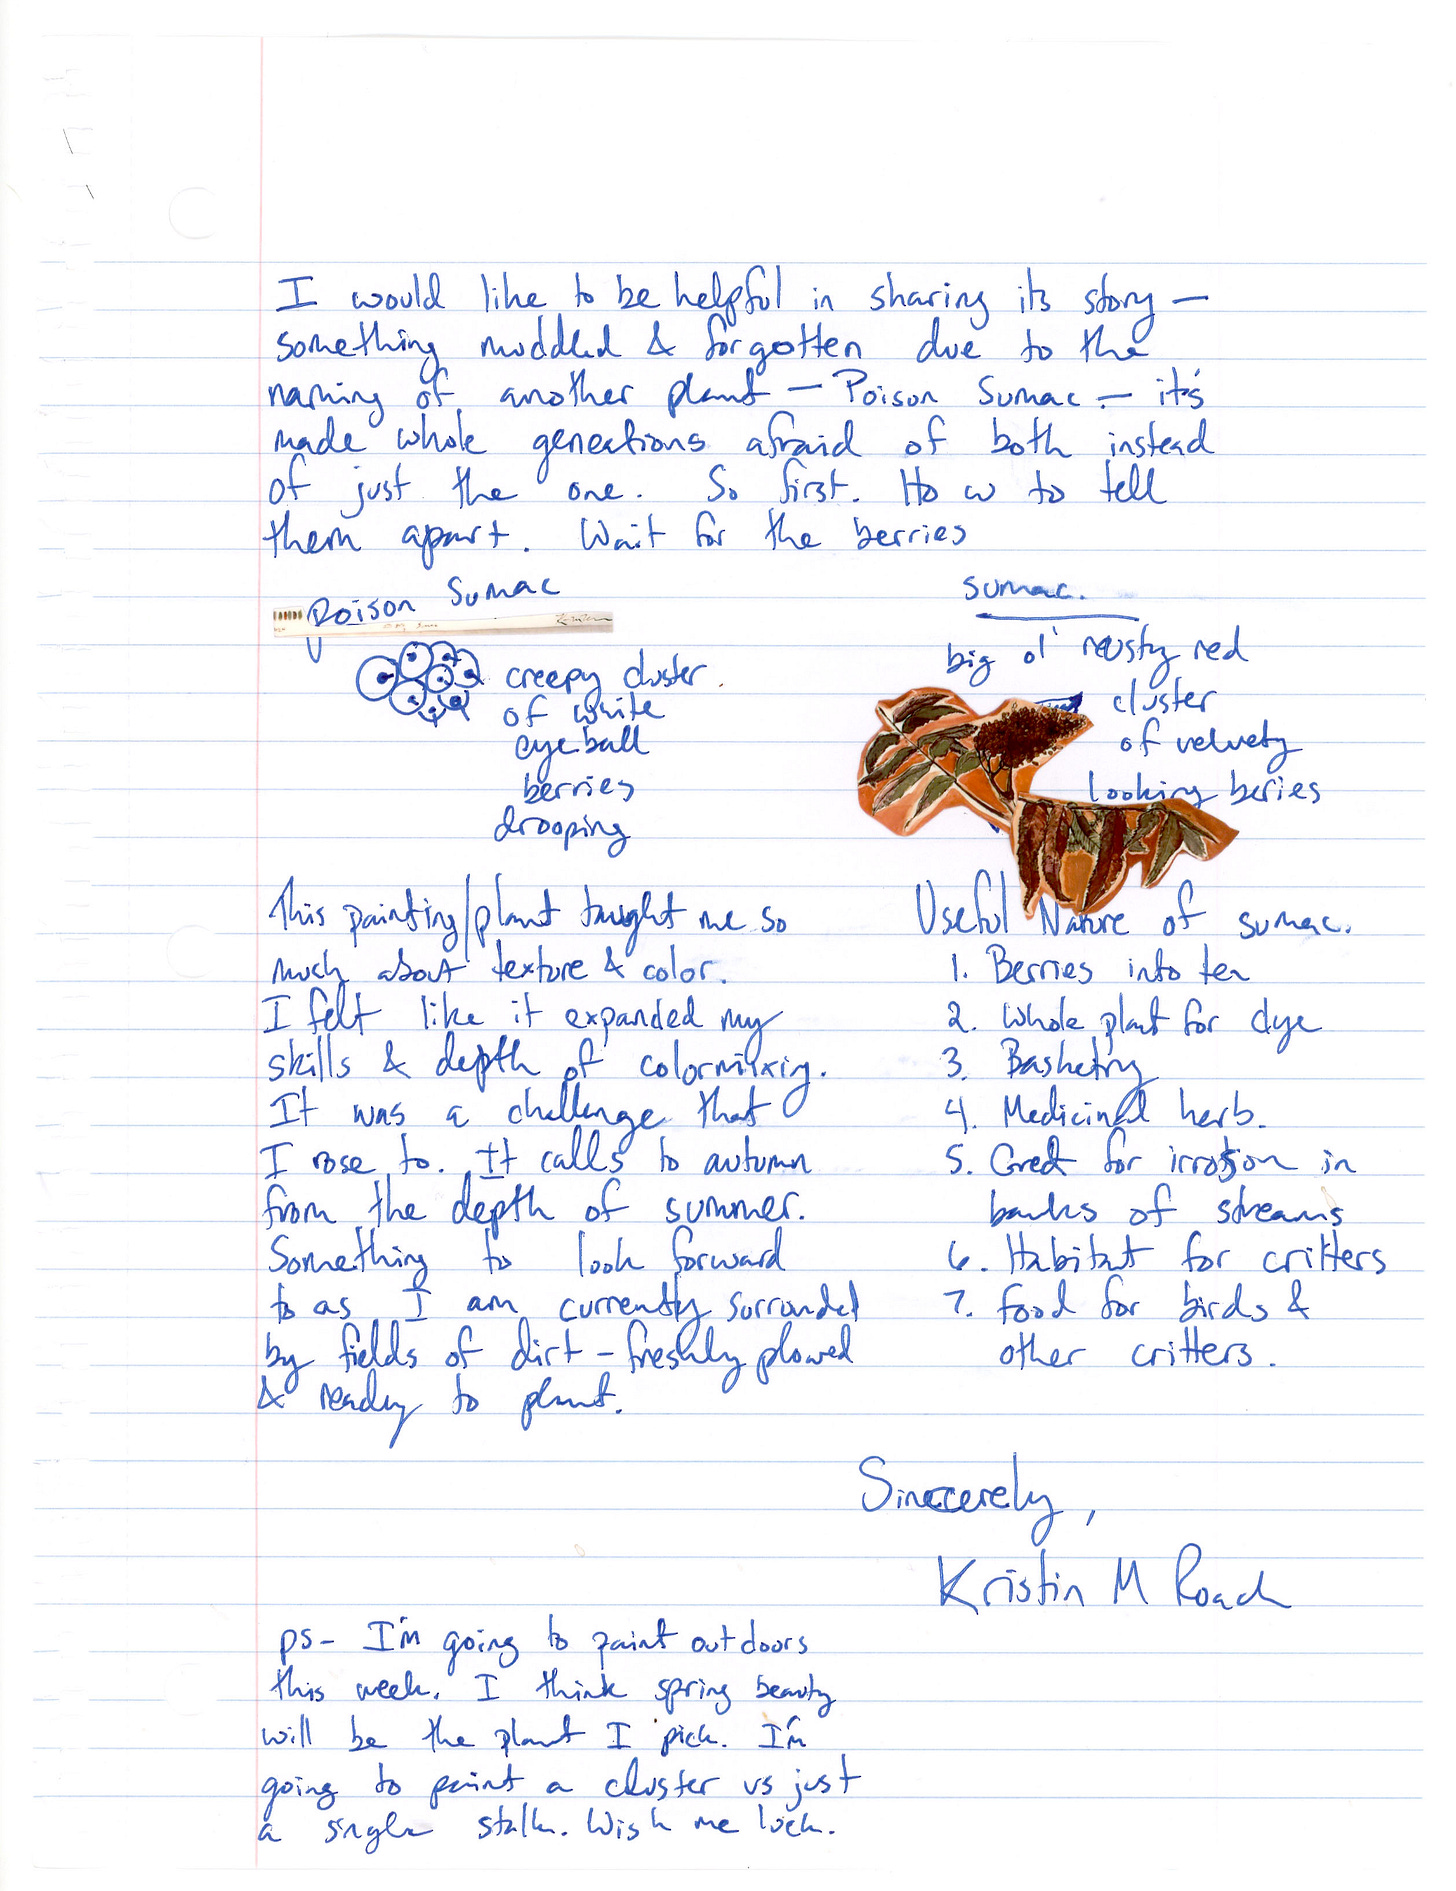 I would like to be helpful in sharing its story —
something muddled & forgotten due to the
naming of another plant — Poison Sumac — it's
made whole geneations afraid of both instead
of just the one. So first. How to tell
them apart. Wait for the berries
Poison Sumac
creepy cluster
of white
eyeball
berries
drooping
sumac.
big ol' rusty red
cluster
of velvety
looking beries
This painting/plant taught me so
much about texture & color.
I felt like it expanded my
skills & depth of colormixing.
It was a challenge that
I rose to. It calls to autumn
from the depth of summer.
Something to look forward
to as I am currently surrounded
by fields of dirt - freshly plowed
& ready to plant.
Useful Nature of sumac.
1. Berries into tea
2. Whole plant for dye
3. Basketry
4. Medicinal herb.
5. Great for irrosion in
banks of streams
6. Habitat for critters
7. food for birds &
other critters.
Sincerely,
Kristin M Roach
ps- I'm going to paint outdoors
this week. I think spring beauty
will be the plant I pick. I'm
going to paint a cluster vs just
a single stalk. Wish me luck.